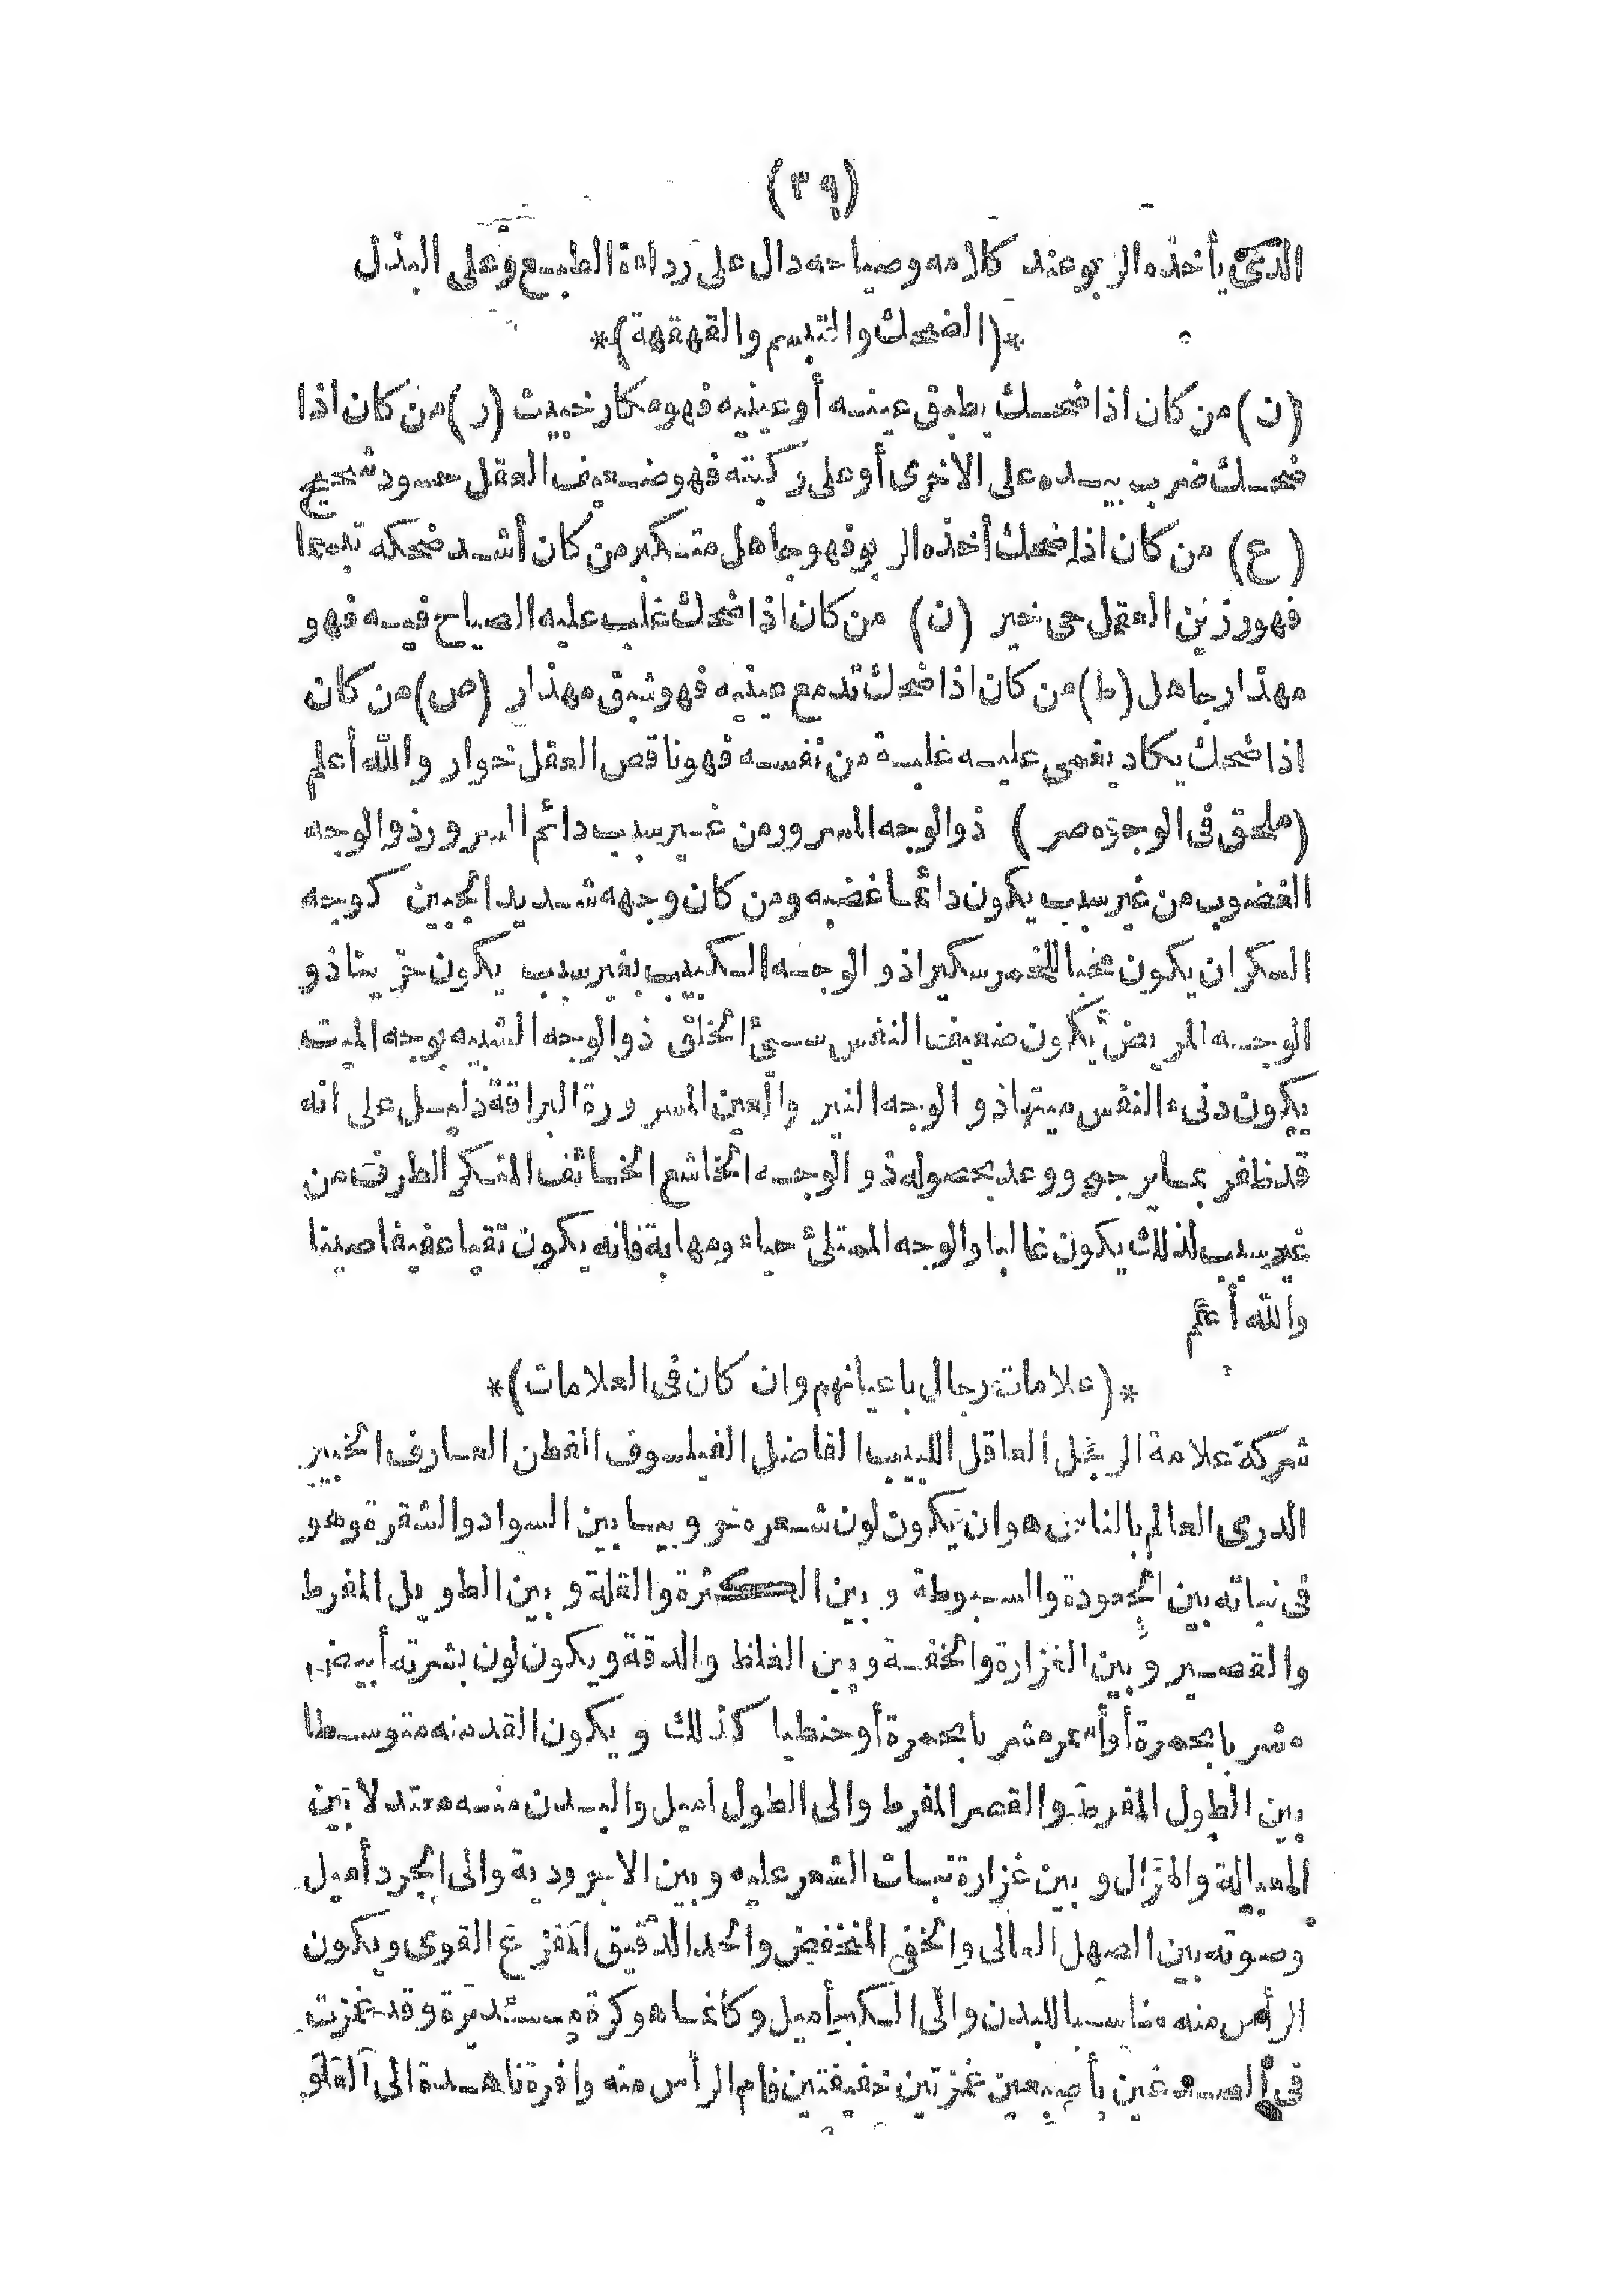 (٣٩)
الذى يأخذه الربو عند كلامه وصياحه دال على رداءة الطبع وعلى البذل
*(الضحك والتبسم والقهقهة)*
(ن) من كان اذا ضحك يطبق عينه أو عينيه فهو مكار خبيث (ر) من كان اذا
ضحك ضرب بيده على الاخرى أو على ركبته فهو ضعيف العقل حسود شحيح
(ع) من كان اذا ضحك أخذه الربو فهو جاهل متكبر من كان أشد ضحكه تبسما
فهو رزين العقل حى خير (ن) من كان اذا ضحك غلب عليه الصياح فيه فهو
مهذار جاهل (ط) من كان اذا ضحك تدمع عينيه فهو شبق مهذار (ص) من كان
اذا ضحك يكاد يغمى عليه غلبة من نفسه فهو ناقص العقل خوار والله أعلم
(ملحق فى الوجوه مصر) ذو الوجه المسرور من غير سبب دائم السرور وذو الوجه
الغضوب من غير سبب يكون دائما غضبه ومن كان وجهه شديد الجبين كوجه
السكران يكون محبا للخمر سكيرا ذو الوجه الكئيب بغير سبب يكون حزينا ذو
الوجه المريض يكون ضعيف النفس سىئ الخلق ذو الوجه الشبيه بوجه الميت
يكون دنىء النفس ميتها ذو الوجه النير والعين المسرورة البراقة دليل على انه
قد ظفر بما يرجو ووعد بحصوله ذو الوجه الخاشع الخائف المنكر الطرف من
غير سبب لذلك يكون غالبا والوجه الممتلئ حياء ومهابة فانه يكون تقيا عفيفا صينا
والله أعلم
*(علامات رجال باعيانهم وان كان فى العلامات)*
شركة علامة الرجل العاقل اللبيب الفاضل الفيلسوف الفطن العارف الخبير
الدرى العالم بالناس هو ان يكون لون شعره خروبيا بين السواد والشقرة وهو
فى نباته بين الجعودة والسبوطة وبين الكثرة والقلة وبين الطويل المفرط
والقصير وبين الغزارة والخفة وبين الغلظ والدقة ويكون لون بشرته أبيض
مشربا بحمرة أو أسمر مشربا بحمرة أو حنطيا كذلك ويكون القد منه متوسطا
بين الطول المفرط والقصر المفرط والى الطول أميل والبدن منه معتدلا بين
العبالة والهزال وبين غزارة نبات الشعر عليه وبين الامرودية والى الجرد أميل
وصوته بين الصهل العالى والخفى المنخفض والحد الدقيق المفزع القوى ويكون
الرأس منه مناسبا للبدن والى الكبر أميل وكأنما هو كرة مستديرة وقد غمزت
فى الصدغين بأصبعين غمزتين خفيفتين فام الرأس منه وافرة ناهدة الى العلو